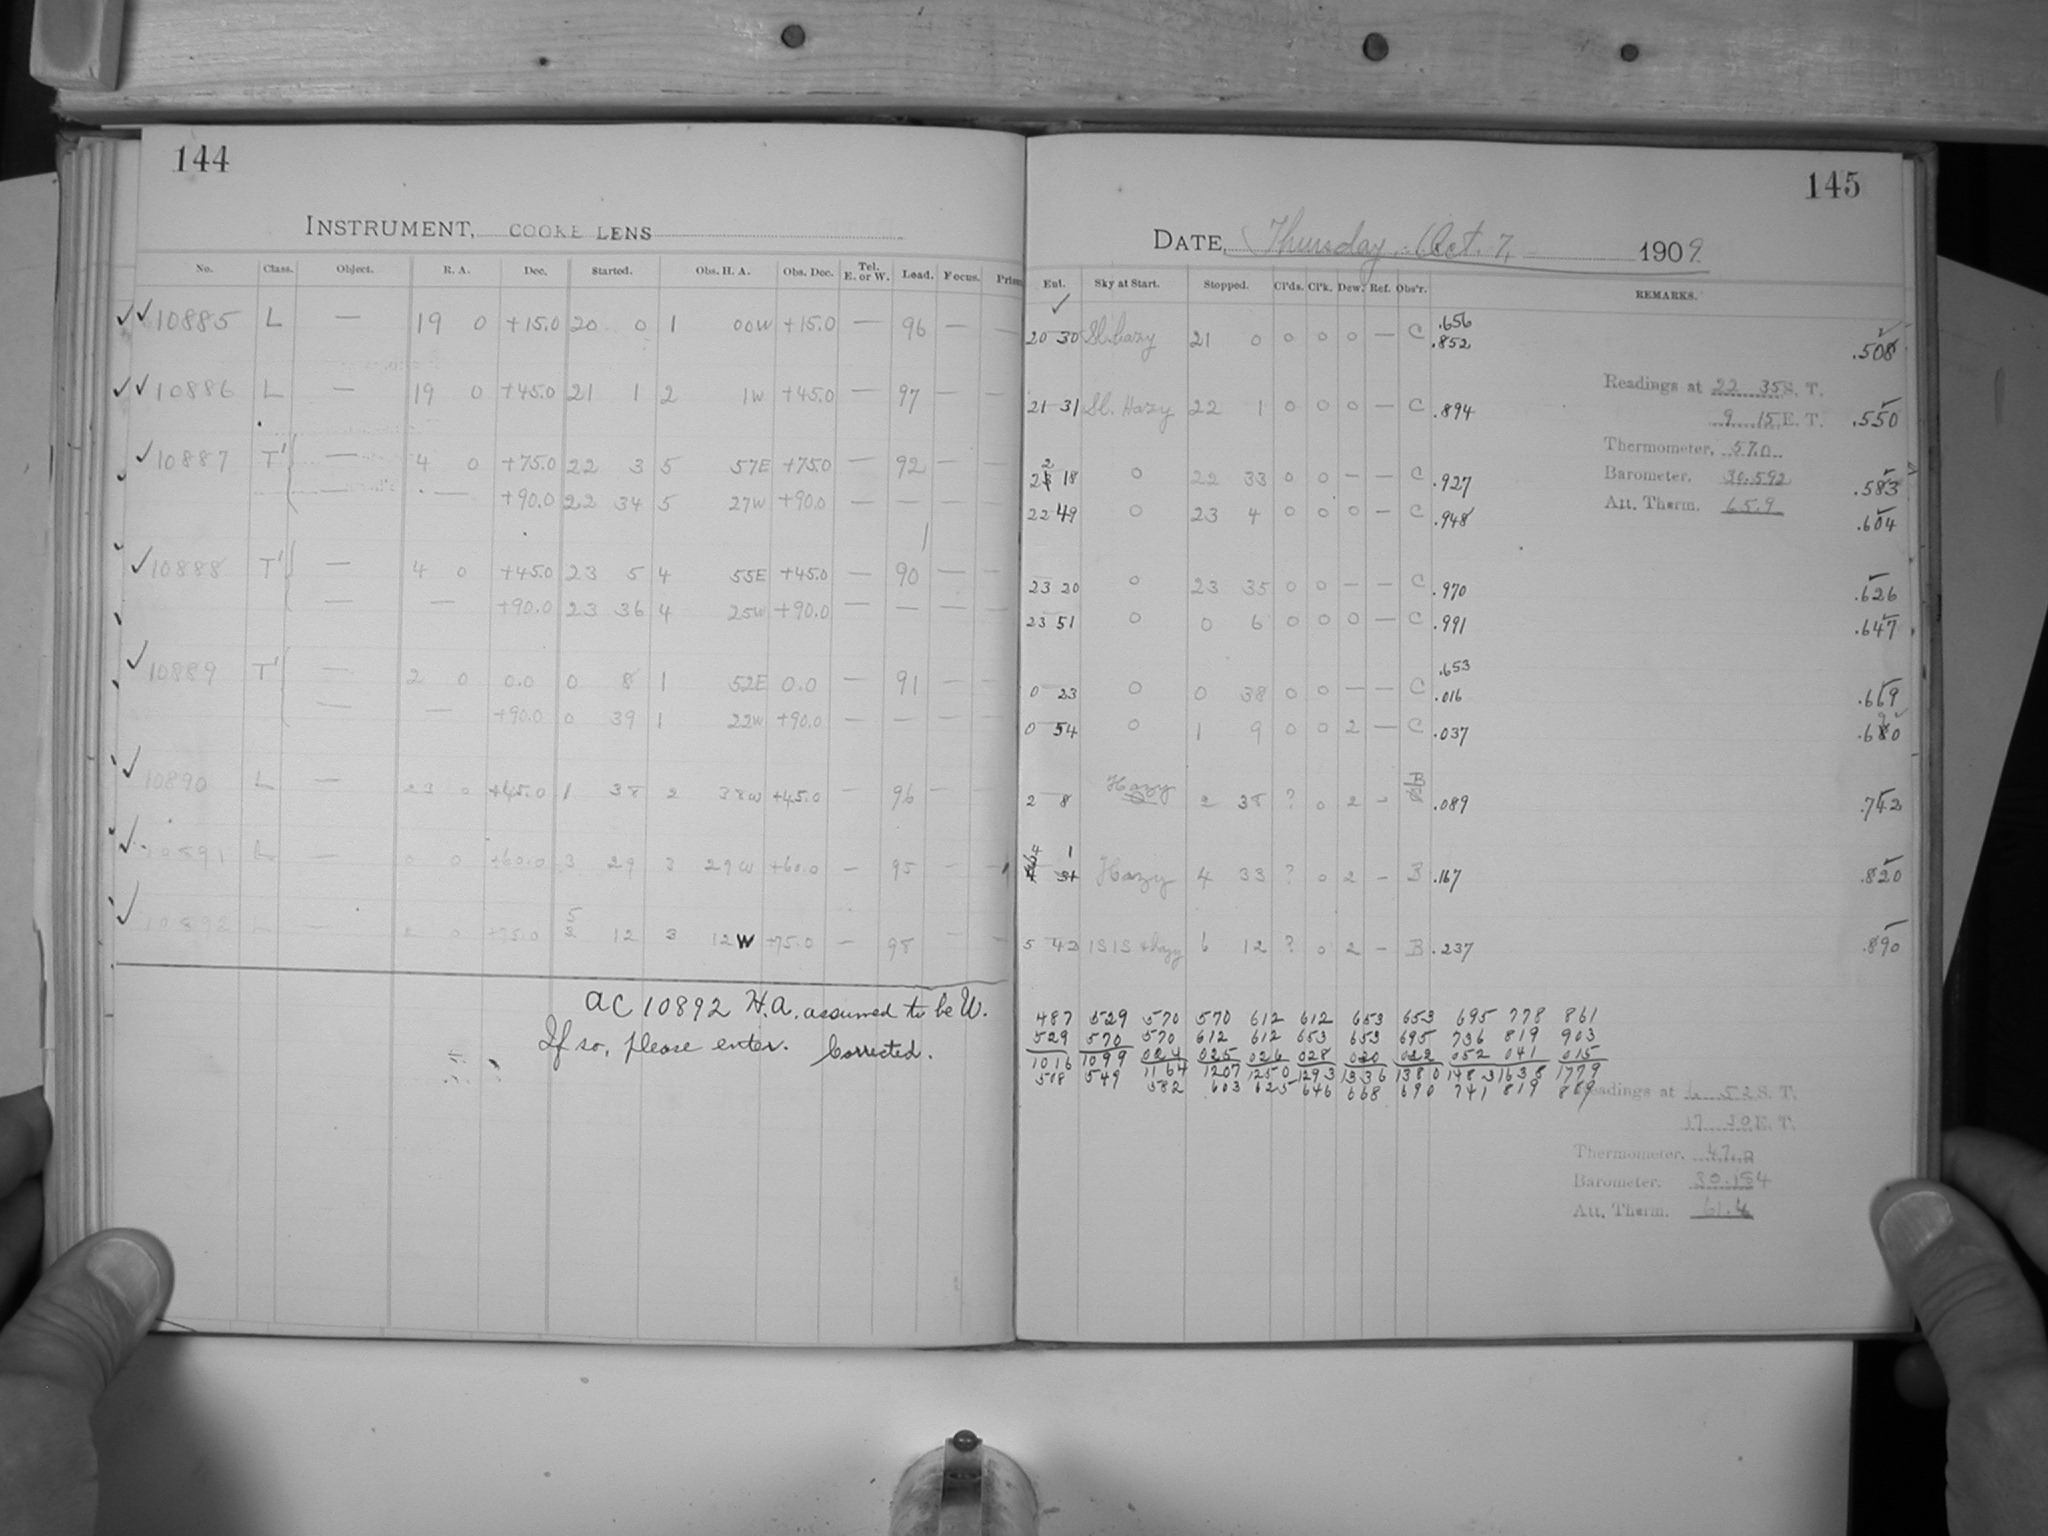 144
INSTRUMENT, COOKE LENS
No. Class. Object. R. A. Dec. Started. Obs. H. A. Obs. Dec. Tel. E. or W. Lead. Focus. Prism
✓✓10885 L — 19 0 +15.0 20 0 1 00W +15.0 — 96 — —
✓✓10886 L — 19 0 +45.0 21 1 2 1W +45.0 — 97 — —
✓10887 T' — 4 0 +75.0 22 3 5 57E +75.0 — 92 — —
— — +90.0 22 34 5 27W +90.0 — — — —
✓10888 T' — 4 0 +45.0 23 5 4 55E +45.0 — 90 — —
— — +90.0 23 36 4 25W +90.0 — — — —
✓10889 T' — 2 0 0.0 0 8 1 52E 0.0 — 91 — —
— — +90.0 0 39 1 22W +90.0 — — — —
✓10890 L — 23 0 +45.0 1 38 2 38W +45.0 — 96 — —
✓10891 L — 0 0 +60.0 3 29 3 29W +60.0 — 95 —
✓10892 L — 2 0 +75.0 5 12 3 12W +75.0 — 98 — —
AC 10892 H.A. assumed to be W.
If so, please enter. Corrected.
145
DATE, Thursday, Oct. 7, 1909
Ent. Sky at Start. Stopped. Cl'ds. Cl'k. Dew. Ref. Obs'r. REMARKS.
✓
.656
20 30 Sl. hazy 21 0 0 0 0 — C .852 .508
Readings at 22 35 S. T.
21 31 Sl. Hazy 22 1 0 0 0 — C .894 .550
9 15 E. T.
Thermometer, 57.0
22 18 0 22 33 0 0 — — C .927 .583
Barometer. 30.592
Att. Therm. 65.9
22 49 0 23 4 0 0 0 — C .948 .604
23 20 0 23 35 0 0 — — C .970 .626
23 51 0 0 6 0 0 0 — C .991 .647
.653
0 23 0 0 38 0 0 — — C .016 .669
0 54 0 1 9 0 0 2 — C .037 .690
2 8 Hazy 2 38 ? 0 2 — B .089 .742
4 1 Hazy 4 33 ? 0 2 — B .167 .820
5 42 ISIS & hazy 6 12 ? 0 2 — B .237 .890
487 529 570 570 612 612 653 653 695 778 861
529 570 570 612 612 653 653 695 736 819 903
1016 1099 024 025 026 028 030 032 052 041 015
508 549 1164 1207 1250 1293 1336 1380 1483 1638 1779
582 603 625 646 668 690 741 819 889
Readings at 6 52 S. T.
17 30 E. T.
Thermometer. 47.0
Barometer. 30.184
Att. Therm. 61.4